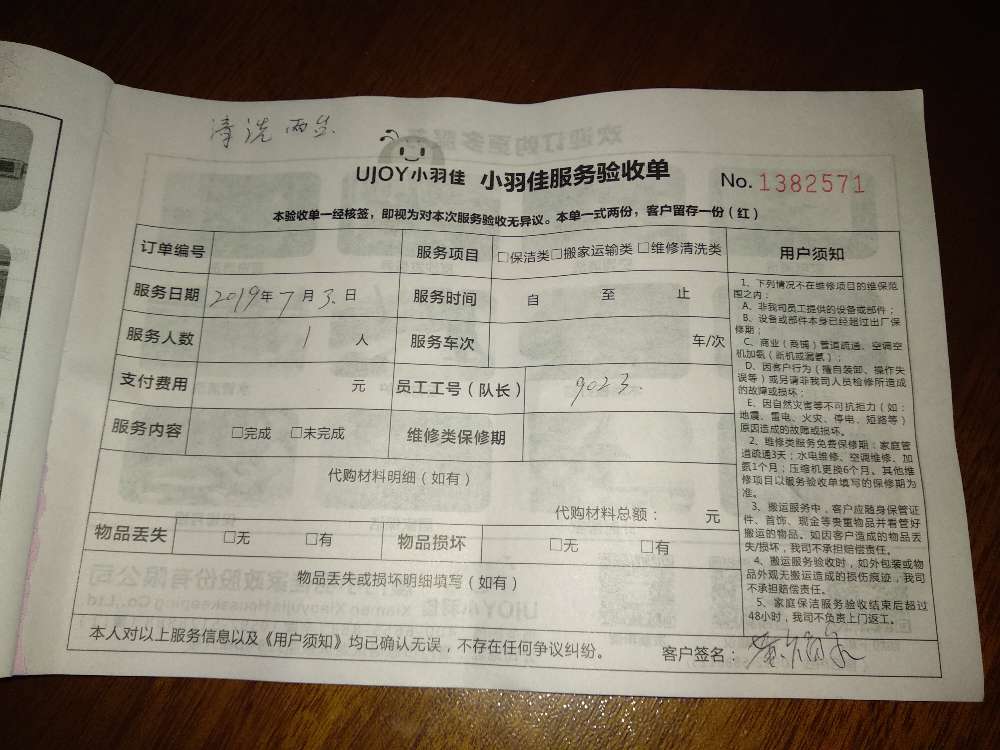 清洗两台
UJOY小羽佳 小羽佳服务验收单 No.1382571
本验收单一经核签，即视为对本次服务验收无异议。本单一式两份，客户留存一份（红）
订单编号 服务项目 □保洁类□搬家运输类 □维修清洗类
服务日期 2019年7月3日 服务时间 自 至 止
服务人数 1 人 服务车次 车/次
支付费用 元 员工工号（队长） 9023
服务内容 □完成 □未完成 维修类保修期
代购材料明细（如有）
代购材料总额： 元
物品丢失 □无 □有 物品损坏 □无 □有
物品丢失或损坏明细填写（如有）
本人对以上服务信息以及《用户须知》均已确认无误，不存在任何争议纠纷。 客户签名：
用户须知
1、下列情况不在维修项目的维保范
围之内：
A、非我司员工提供的设备或部件；
B、设备或部件本身已经超过出厂保
修期；
C、商业（商铺）管道疏通、空调空
机加氨（新机或漏氨）；
D、因客户行为（擅自装卸、操作失
误等）或另请非我司人员检修所造成
的故障或损坏；
E、因自然灾害等不可抗拒力（如：
地震、雷电、火灾、停电、短路等）
原因造成的故障或损坏。
2、维修类服务免费保修期：家庭管
道疏通3天；水电维修、空调维修、加
氨1个月；压缩机更换6个月。其他维
修项目以服务验收单填写的保修期为
准。
3、搬运服务中，客户应随身保管证
件、首饰、现金等贵重物品并看管好
搬运的物品。如因客户造成的物品丢
失/损坏，我司不承担赔偿责任。
4、搬运服务验收时，如外包装或物
品外观无搬运造成的损伤痕迹，我司
不承担赔偿责任。
5、家庭保洁服务验收结束后超过
48小时，我司不负责上门返工。